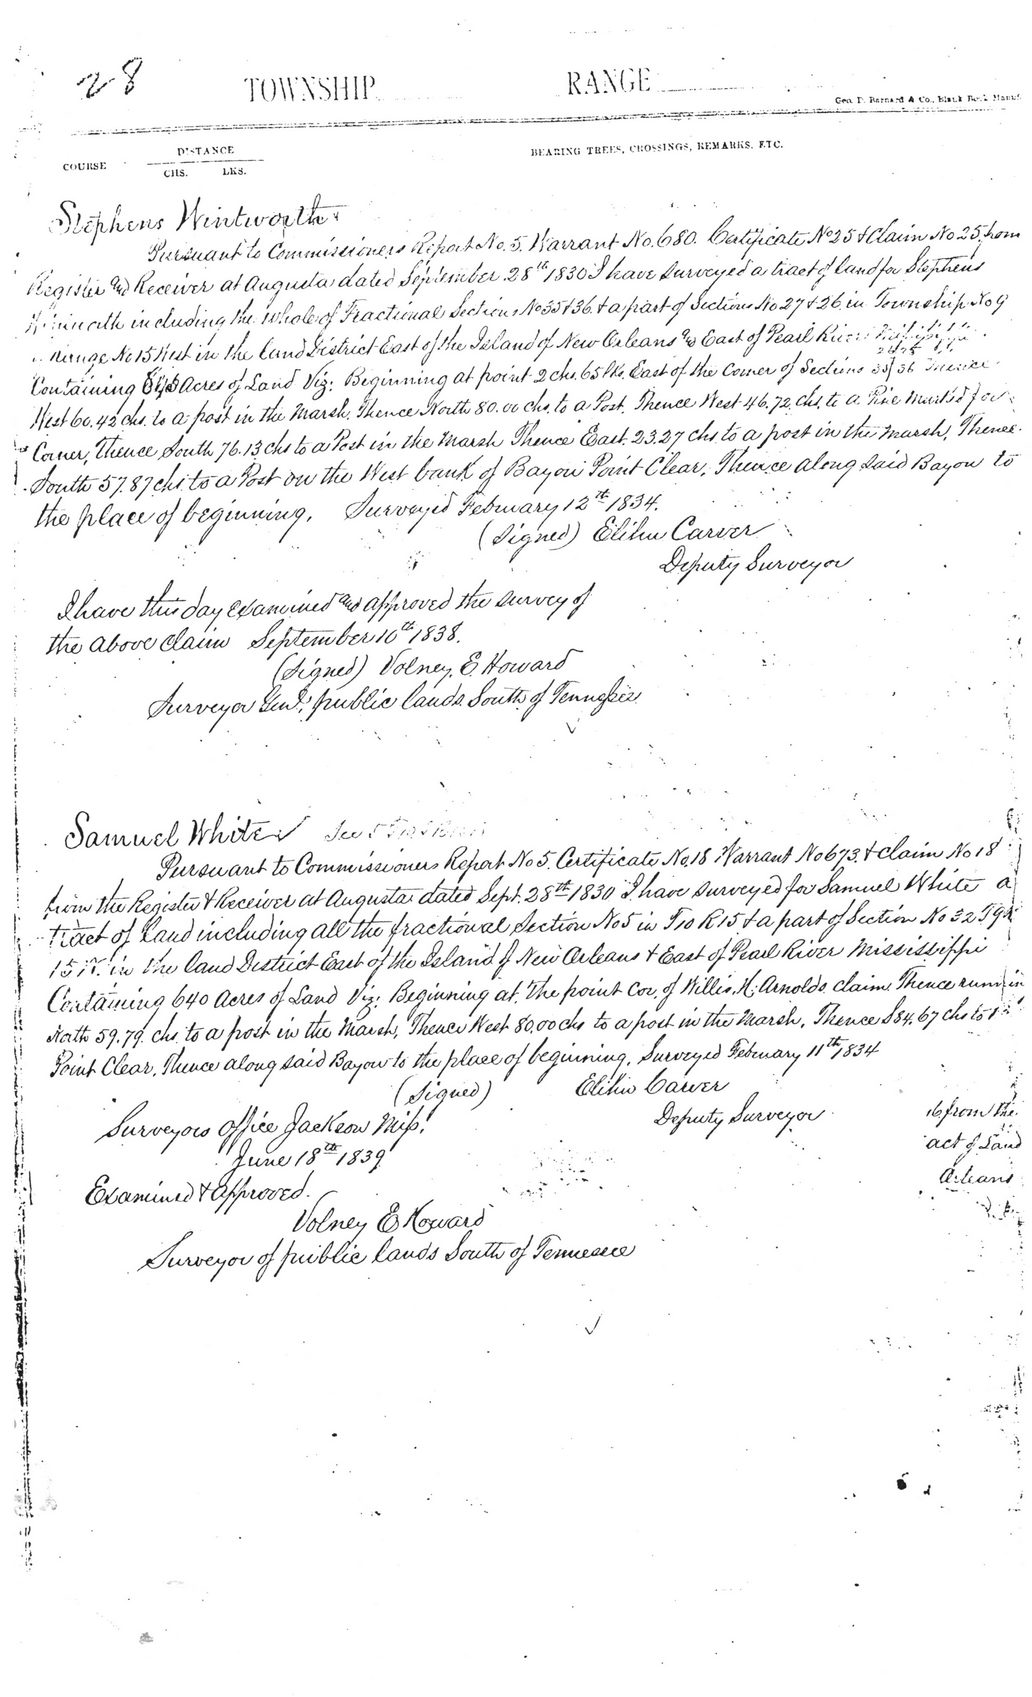 28
TOWNSHIP RANGE
Geo. D. Barnard & Co., Blank Book Manuf
COURSE DISTANCE BEARING TREES, CROSSINGS, REMARKS, ETC.
CHS. LKS.
Stephens Wintworth
Pursuant to Commissioners Report No. 5. Warrant No. 680. Certificate No 25 & Claim No 25, from
Register and Receiver at Augusta dated September 28th 1830 I have surveyed a tract of land for Stephens
including the whole of Fractional Sections No 35 & 36 & a part of Sections No 27 & 26 in Township No 9
Range No 15 West in the land District East of the Island of New Orleans and East of Pearl River
Containing Acres of Land Viz: Beginning at point 2 chs. 65 lks. East of the Corner of Sections 35/36 Thence
West 60.42 chs. to a post in the Marsh, Thence North 80.00 chs. to a Post. Thence West 46.72 chs. to a Pine Marked for
Corner, Thence South 76.13 chs to a Post in the Marsh Thence East. 23.27 chs to a post in the Marsh, Thence
South 57.87 chs to a Post on the West bank of Bayou Point Clear, Thence along said Bayou to
the place of beginning. Surveyed February 12th 1834.
(Signed) Elihu Carver
Deputy Surveyor
I have this day examined and approved the survey of
the above claim September 10th 1838.
(Signed) Volney. E. Howard
Surveyor Genl. public lands South of Tennessee
Samuel White
Pursuant to Commissioners Report No 5. Certificate No 18 Warrant No 673. & Claim No 18
from the Register & Receiver at Augusta dated Sept. 28th 1830 I have surveyed for Samuel White a
Tract of Land including all the fractional Section No 5 in T10 R15 & a part of Section No 32 T9R
15 W. in the land District East of the Island of New Orleans & East of Pearl River Mississippi
Containing 640 Acres of Land Viz: Beginning at, The point Cor. of Willis H. Arnolds claim Thence running
North 59.79 chs. to a post in the Marsh, Thence West 80.00 chs to a post in the Marsh, Thence S84.67 chs to
Point Clear, Thence along said Bayou to the place of beginning. Surveyed February 11th 1834
(Signed) Elihu Carver
Deputy Surveyor
Surveyors Office Jackson Miss.
June 18th 1839
Examined & Approved.
Volney E Howard
Surveyor of public lands South of Tennessee
from the
act of Land
Orleans